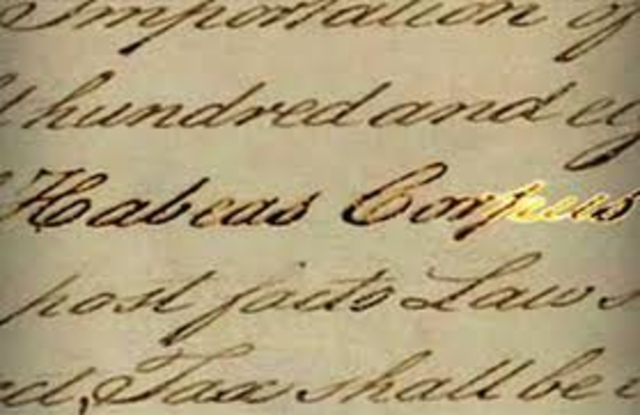 Importation of
hundred and ei
Habeas Corpus
post facto Laws
ect, Tax shall be